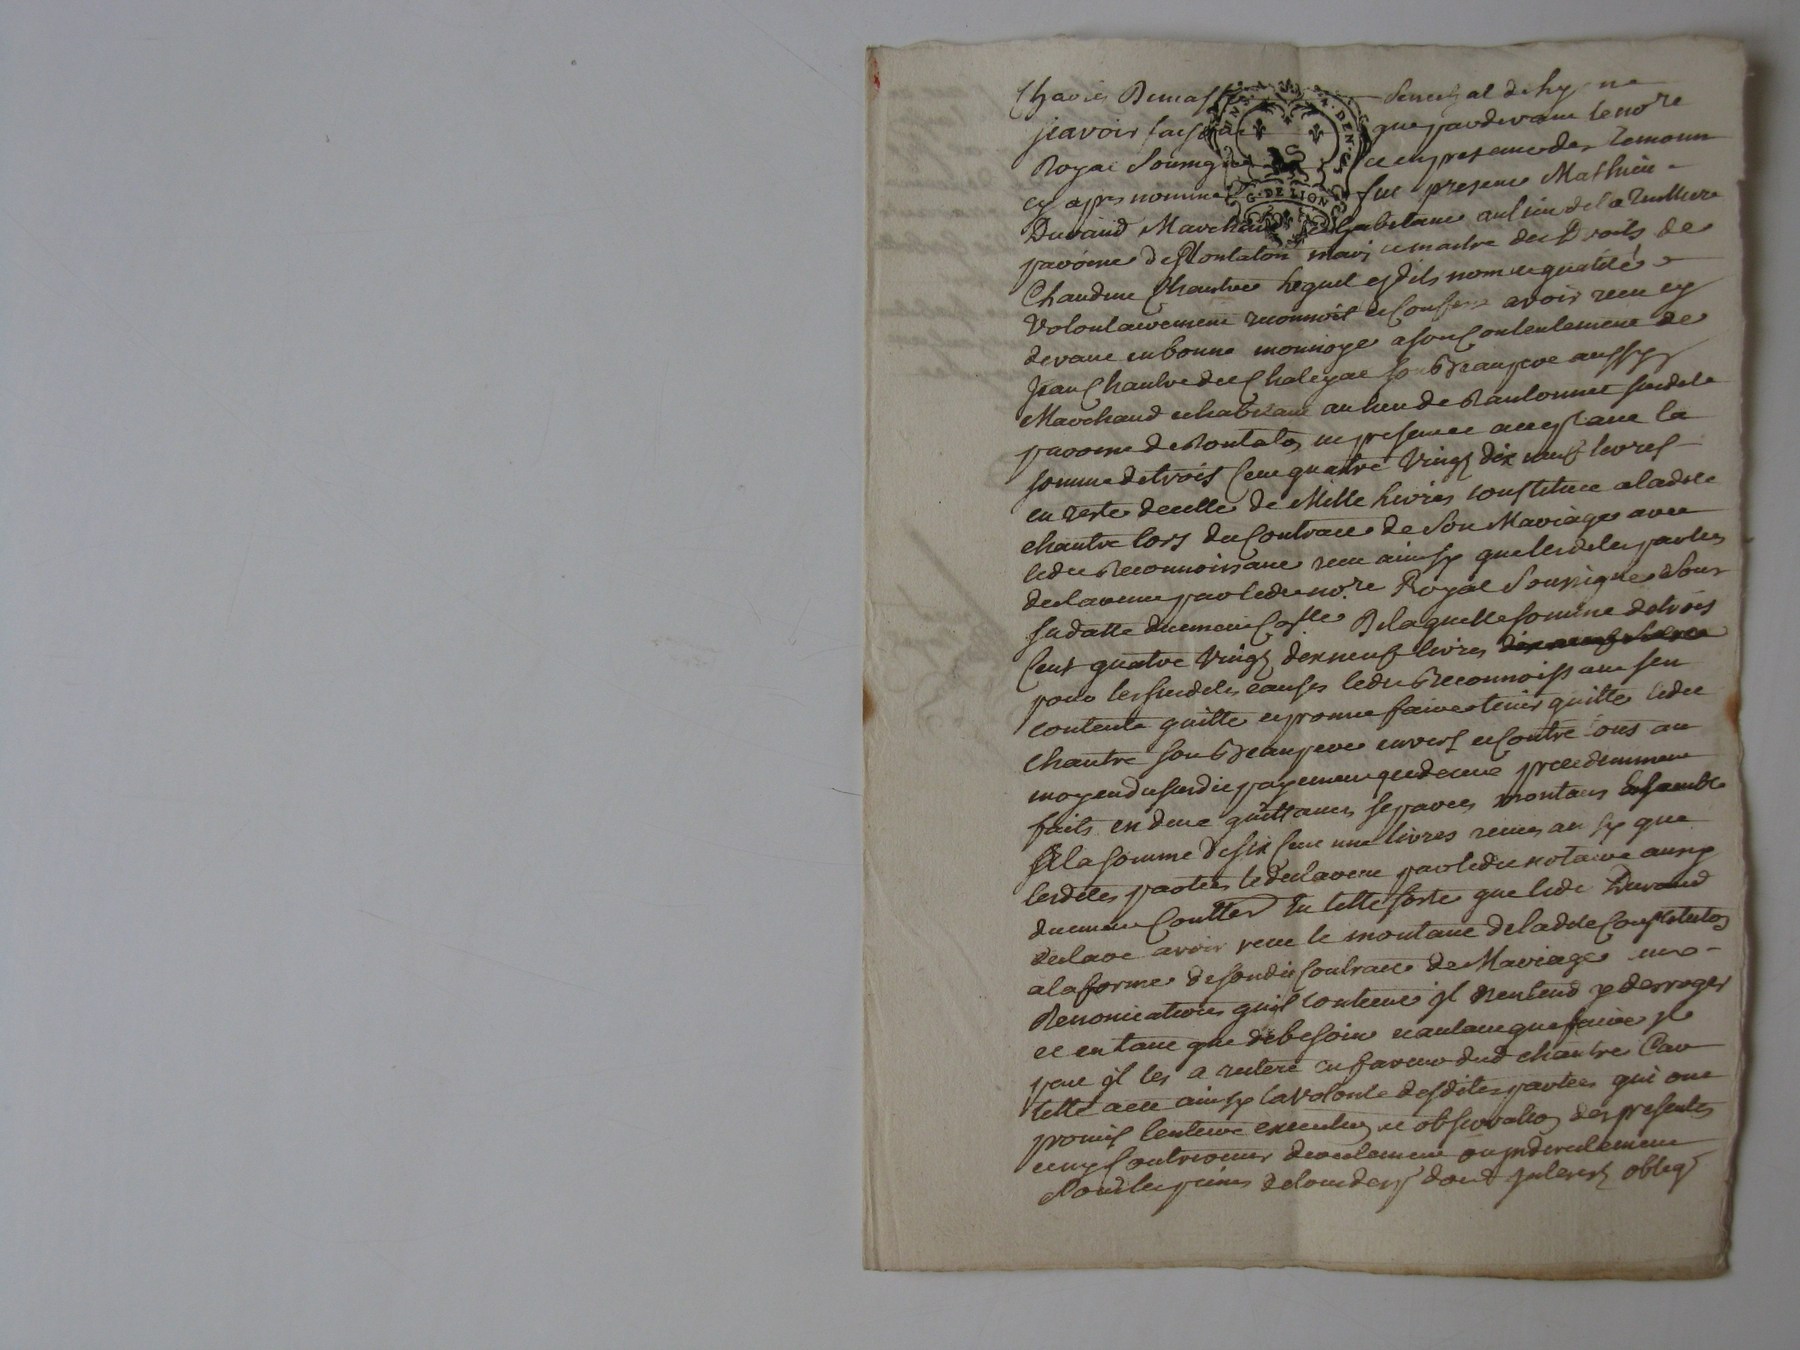 Charles Demasso Senechal de Lyon
scavoir faisons que pardevant le no.re
Royal Soussigné et en presence des temoins
cy apres nommés fut present Mathieu
Durand Marchand habitant au lieu de la
paroisse de Rontalon mari et maitre des Droits de
Chantre Lequel esdits nom et qualité
Volontairement reconnoit et Confesse avoir receu cy
devant en bonne monnoye a son Contentement de
Jean Chantre dit Chaleyat son Beaupere aussy
Marchand et habitant au lieu de susdite
paroisse de Rontalon cy present et acceptant la
somme de trois Cent quatre Vingt dix neuf livres
en reste de celle de Mille Livres constituee a ladite
chantre lors du Contract de Son Mariage avec
ledit Reconnoissant receu ainsy que lesdites parties
declarent par ledit no.re Royal Soussigné Sous
sa datte De laquelle somme de trois
Cent quatre Vingt dix neuf livres
pour les susdites causes ledit Reconnoissant s'en
contente quitte et promet faire tenir quitte ledit
chantre son Beaupere envers et Contre tous au
moyen du susdit payement precedemment
faits en deux quittances separees montans Ensemble
a la somme de six Cent une livres receues ainsy que
lesdites parties le declarent par ledit notaire aussy
En telle sorte que ledit Durand
declare avoir receu le montant de ladite Constitution
a la forme de sondit Contract de Mariage
Renonciations qu'il contient il n'entend y derroger
et en tant que de besoin et autant que faire se
peut il les a reiteré en faveur dud chantre Car
telle a été ainsy la Volonté desdites parties qui ont
promis l'entiere execution et observation des presentes
et n'y Contrevenir directement ou indirectement
Sous les peines de tous depens dom et Interests oblig
G. DE LION